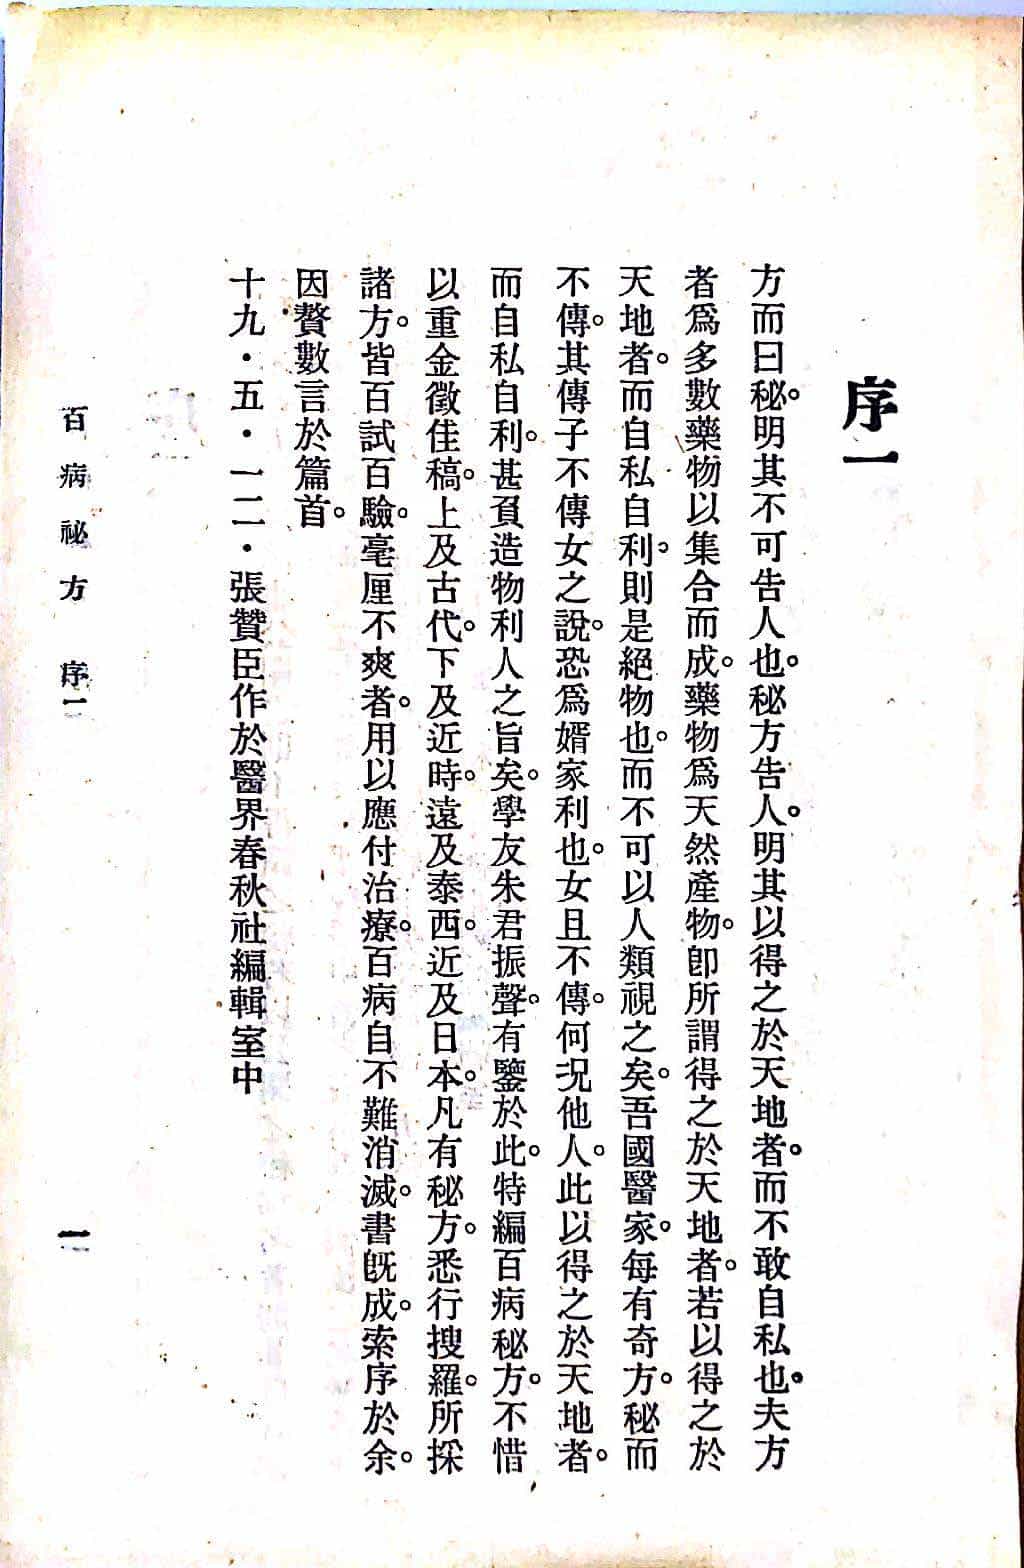 序一
方而曰秘。明其不可告人也。秘方告人。明其以得之於天地者。而不敢自私也。夫方
者爲多數藥物以集合而成。藥物爲天然產物。卽所謂得之於天地者。若以得之於
天地者。而自私自利。則是絕物也。而不可以人類視之矣。吾國醫家。每有奇方。秘而
不傳。其傳子不傳女之說。恐爲婿家利也。女且不傳。何況他人。此以得之於天地者。
而自私自利。甚負造物利人之旨矣。學友朱君振聲。有鑒於此。特編百病秘方。不惜
以重金徵佳稿。上及古代。下及近時。遠及泰西。近及日本。凡有秘方。悉行搜羅。所採
諸方。皆百試百驗。毫厘不爽者。用以應付治療。百病自不難消滅。書旣成。索序於余。
因贅數言於篇首。
十九·五·一二·張贊臣作於醫界春秋社編輯室中
百病祕方 序一 一